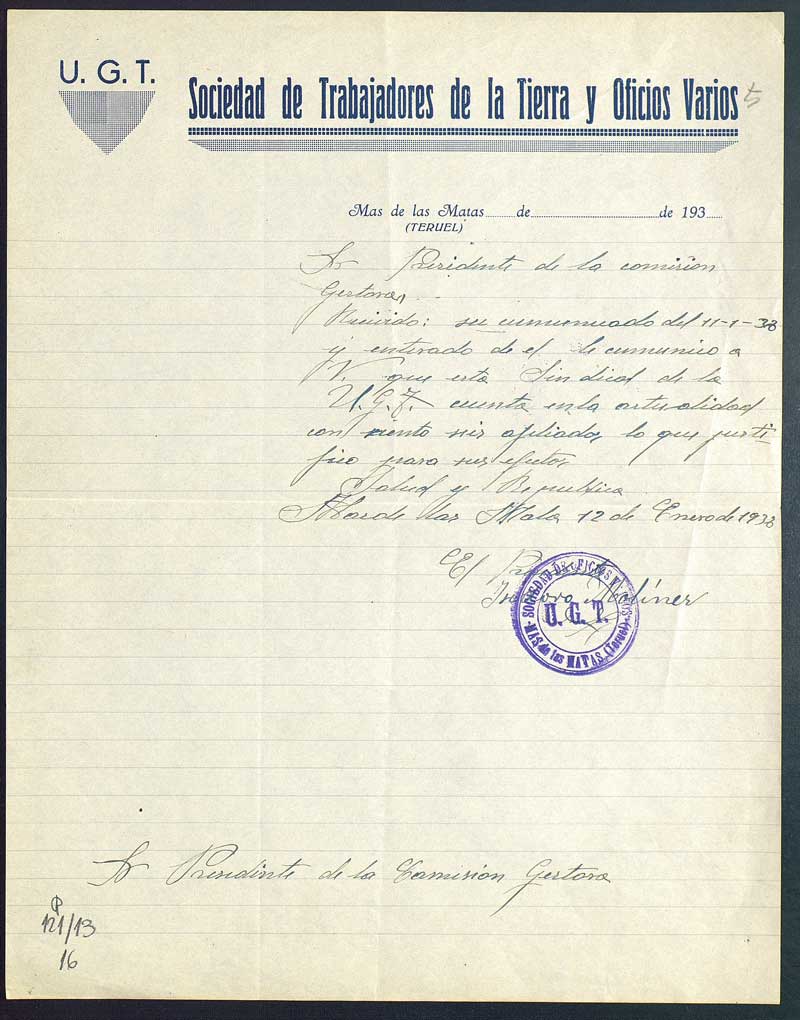 U. G. T.
Sociedad de Trabajadores de la Tierra y Oficios Varios
5
Mas de las Matas de de 193
(TERUEL)
Sr Presidente de la comision
Gestora
Recivido: su cumunicado del 11-1-38
y enterado de el le cumunico a
V. que esta Sindical de la
U.G.T. cuenta en la actualidad
con siento seis afiliados lo que justi
fico para sus efectos
Salud y Republica
Mas de las Mata 12 de Enero de 1938
El
Molinер
SOCIEDAD DE OFICIOS VARIOS
U. G. T.
MAS de las MATAS (Teruel)
Sr Presidente de la Comision Gestora
P
121/13
16